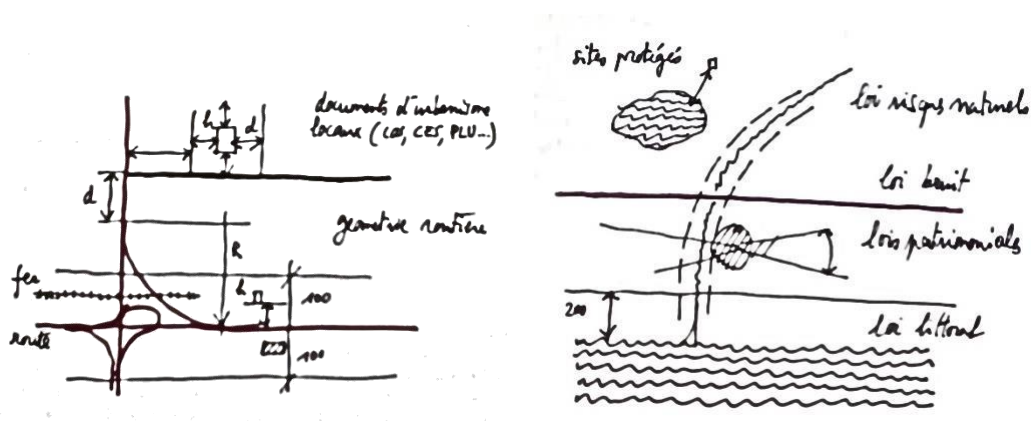 documents d'urbanisme
locaux (COS, CES, PLU...)
h
d
d
géométrie routière
R
fer
h
100
route
100
sites protégés
loi risques naturels
loi bruit
lois patrimoniales
200
loi littoral